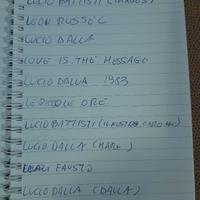 LUCIO BATTISTI (IMAGES)
LEON RUSSEL
LUCIO DALLA
LOVE IS THE MESSAGE
LUCIO DALLA 1983
LE PICCOLE ORE
LUCIO BATTISTI (IL NOSTRO CARO
LUCIO DALLA (MARE)
LEALI FAUSTO
LUCIO DALLA (DALLA)